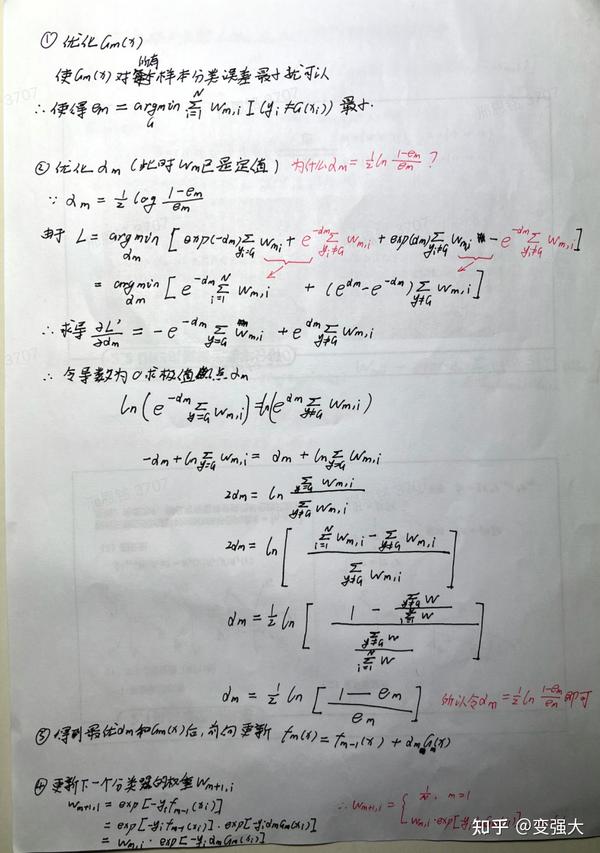 ① 优化 Gm(x)
使Gm(x)对所有样本分类误差最小就可以
∴ 使得 em = argmin_G Σ_{i=1}^{N} Wm,i I(yi ≠ G(xi)) 最小.
② 优化 αm (此时 Wm 已是定值) 为什么 αm = 1/2 ln (1-em)/em ?
∵ αm = 1/2 log (1-em)/em
由于 L = argmin_{αm} [exp(-αm) Σ_{yi=G} Wm,i + e^{-αm} Σ_{yi≠G} Wm,i + exp(αm) Σ_{yi≠G} Wm,i - e^{-αm} Σ_{yi≠G} Wm,i]
= argmin_{αm} [e^{-αm} Σ_{i=1}^{N} Wm,i + (e^{αm} - e^{-αm}) Σ_{y≠G} Wm,i]
∴ 求导 ∂L'/∂αm = -e^{-αm} Σ_{y=G} Wm,i + e^{αm} Σ_{y≠G} Wm,i
∴ 令导数为0求极值点 αm
ln(e^{-αm} Σ_{y=G} Wm,i) = ln(e^{αm} Σ_{y≠G} Wm,i)
-αm + ln Σ_{y=G} Wm,i = αm + ln Σ_{y≠G} Wm,i
2αm = ln (Σ_{y=G} Wm,i)/(Σ_{y≠G} Wm,i)
2αm = ln [(Σ_{i=1}^{N} Wm,i - Σ_{y≠G} Wm,i)/(Σ_{y≠G} Wm,i)]
αm = 1/2 ln [(1 - (Σ_{y≠G} W)/(Σ_{i=1}^{N} W))/((Σ_{y≠G} W)/(Σ_{i=1}^{N} W))]
αm = 1/2 ln [(1-em)/em] 所以令 αm = 1/2 ln (1-em)/em 即可
③ 得到最优αm和Gm(x)后, 前向更新 fm(x) = fm-1(x) + αm Gm(x)
④ 更新下一个分类器的权重 Wm+1,i
Wm+1,i = exp[-yi fm-1(xi)] ∴ Wm+1,i = { 1/N, m=1
= exp[-yi fm-1(xi)] · exp[-yi αm Gm(xi)] Wm,i · exp[-yi
= Wm,i · exp[-yi αm Gm(xi)]
知乎 @变强大